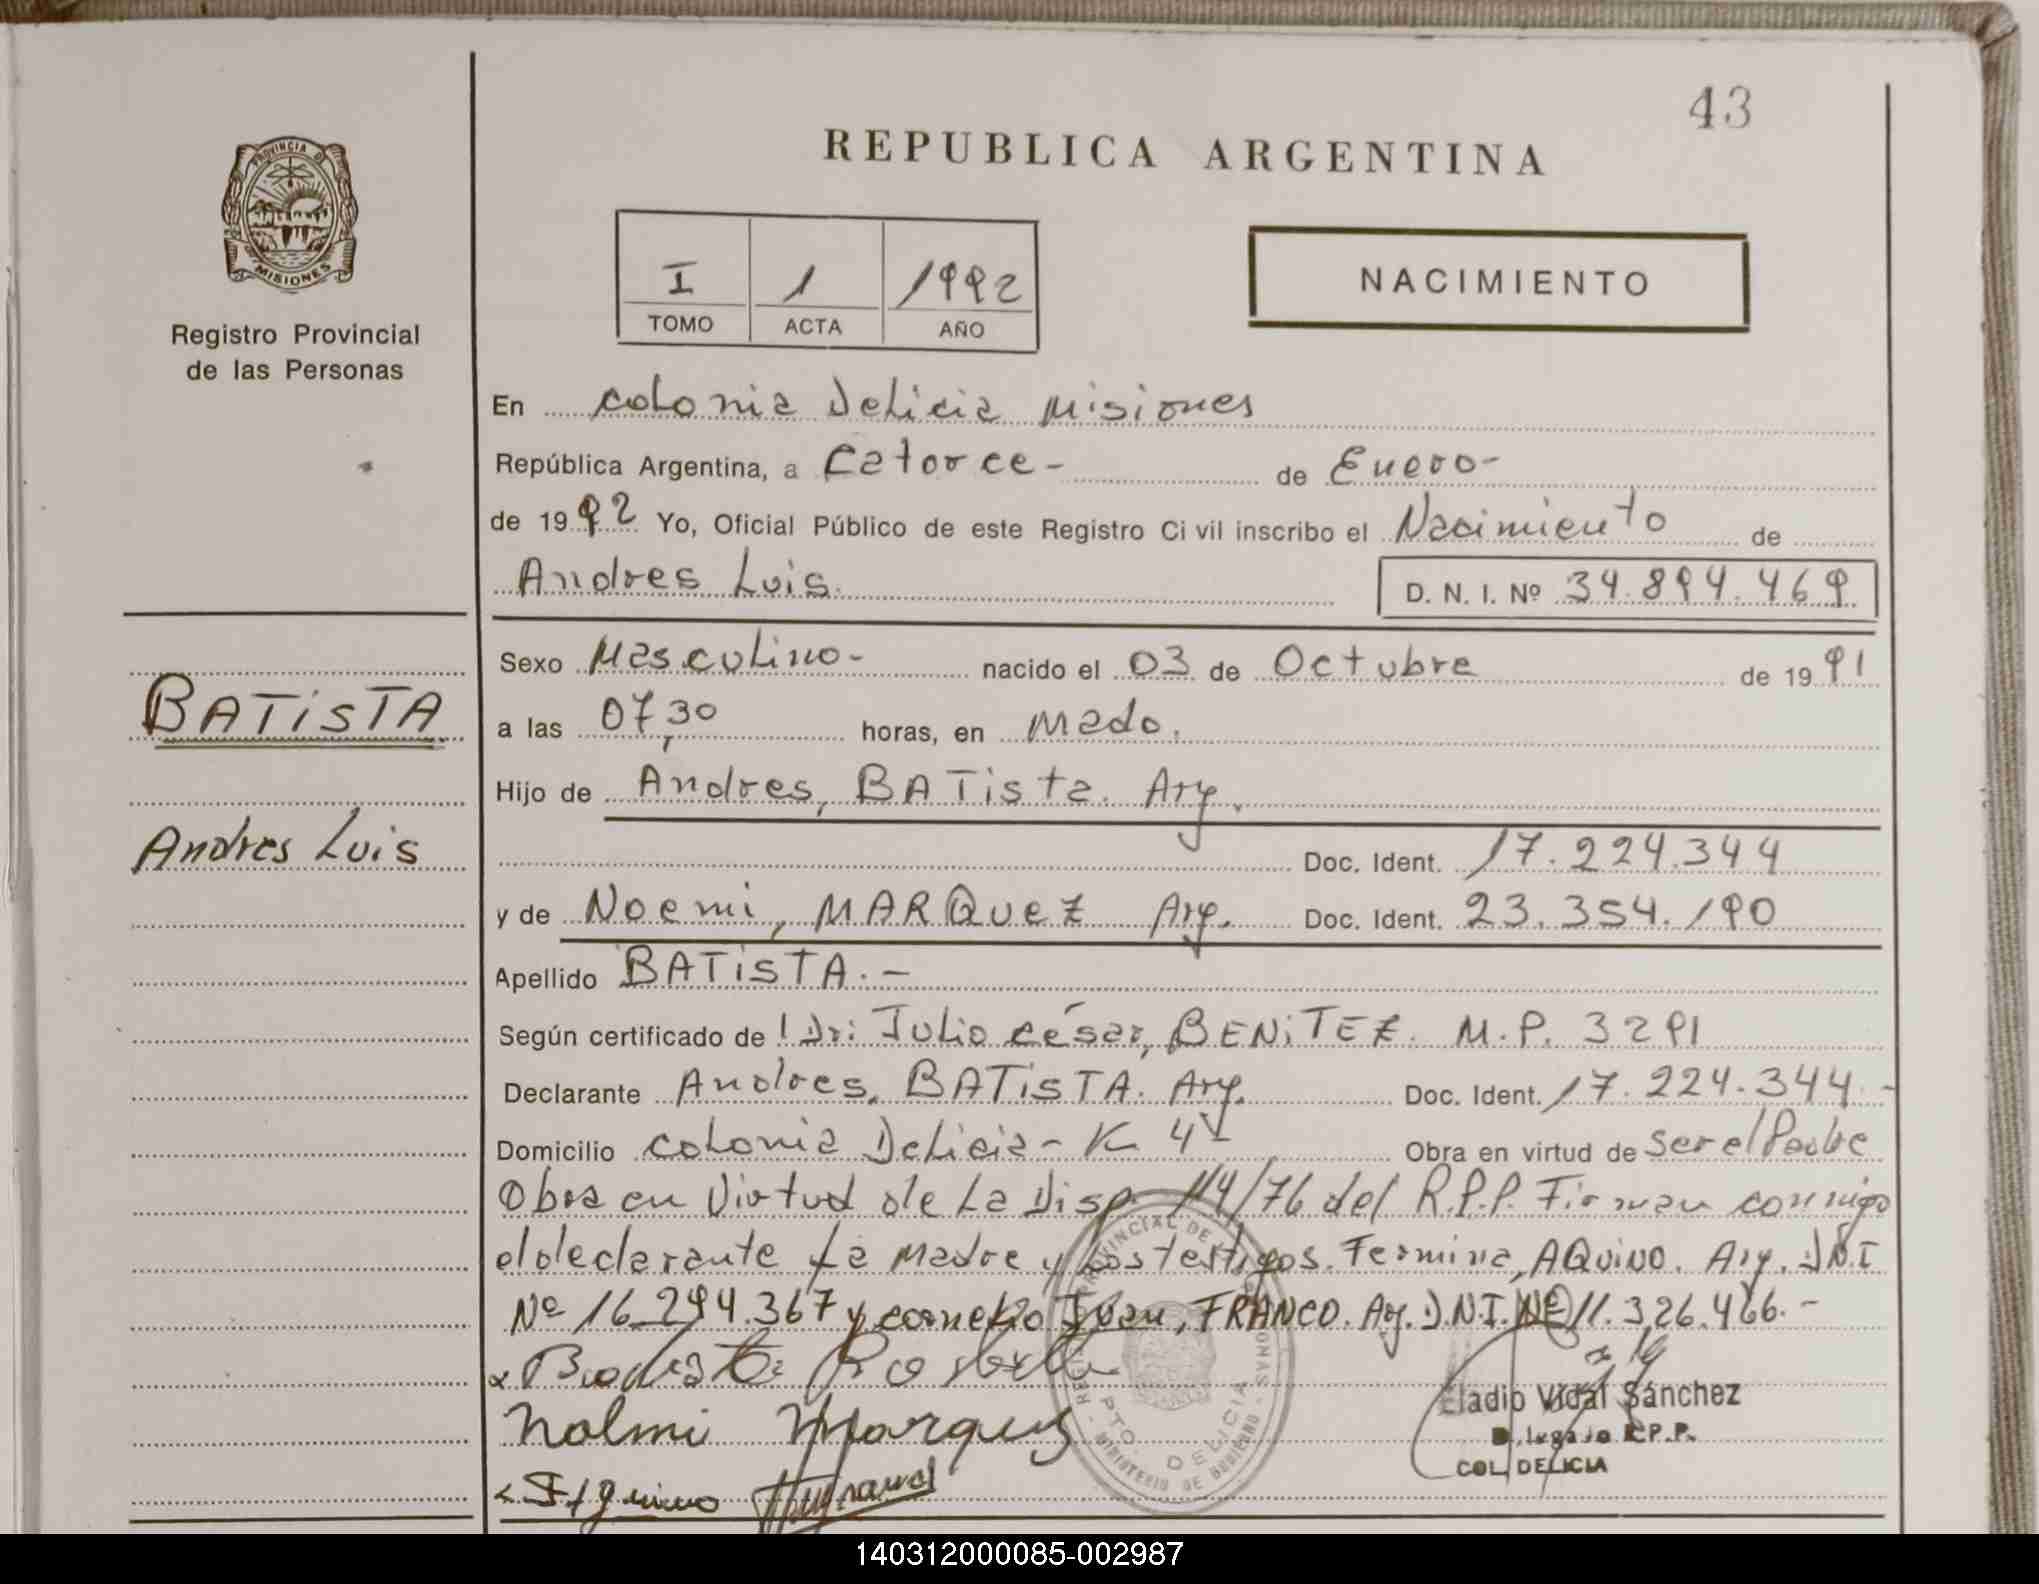 43
REPUBLICA ARGENTINA
PROVINCIA DE
MISIONES
Registro Provincial
de las Personas
I 1 1992
TOMO ACTA AÑO
NACIMIENTO
En colonia Delicia Misiones
República Argentina, a Catorce - de Enero -
de 1992 Yo, Oficial Público de este Registro Ci vil inscribo el Nacimiento de
Andres Luis. D. N. I. Nº 34.894.469
Sexo Masculino - nacido el 03 de Octubre de 1991
BATisTA
a las 07,30 horas, en Mado.
Hijo de Andres, BATista. Arg.
Andres Luis
Doc. Ident. 17.224.344
y de Noemi, MARQuez Arg. Doc. Ident. 23.354.190
Apellido BATisTA. -
Según certificado de Dr: Julio césar, BENiTEZ. M.P. 3291
Declarante Andres, BATisTA. Arg. Doc. Ident. 17.224.344 -
Domicilio colonia Delicia - K 41 Obra en virtud de ser el Padre
Obra en Virtud de La Disp 114/76 del R.P.P. Firman conmigo
el declarante La Madre y Los testigos. Fermina, AQuiNO. Arg. D.N.I
Nº 16.294.367 y cornelio Juan, FRANCO. Arg. D.N.I. Nº 11.326.466. -
Eladio Vidal Sánchez
R.P.P.
COL. DELICIA
PTO. DELICIA
MINISTERIO DE GOBIERNO
140312000085-002987